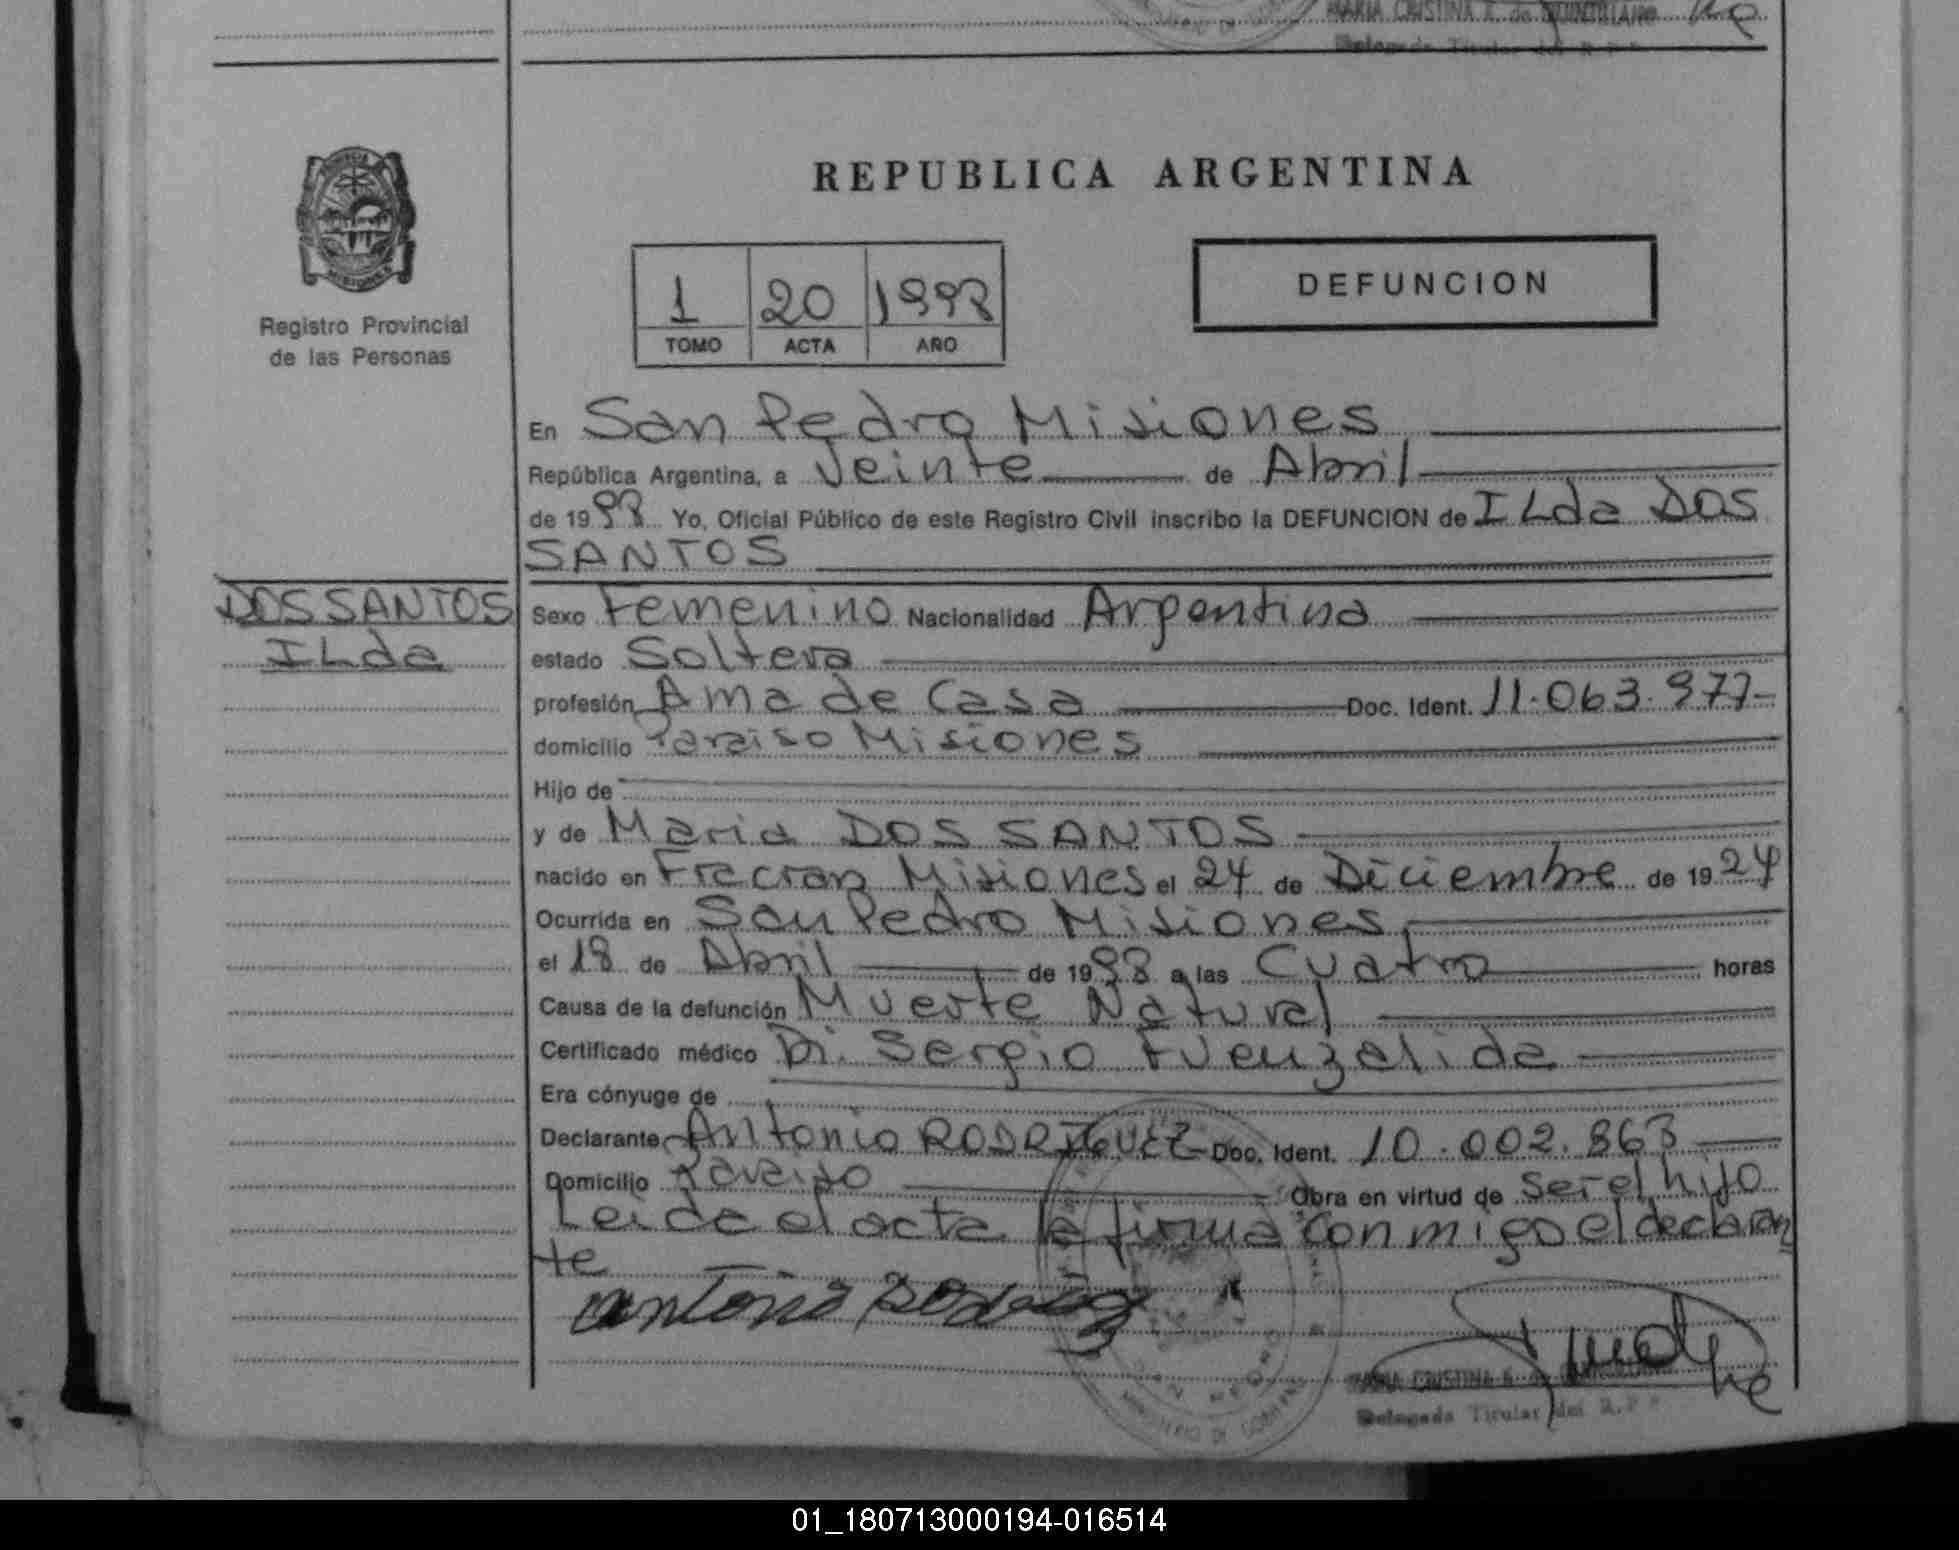 MARIA CRISTINA
Delegada Titular del R.P.P.
REPUBLICA ARGENTINA
MISIONES
Registro Provincial
de las Personas
1 20 1998
TOMO ACTA AÑO
DEFUNCION
En San Pedro Misiones
República Argentina, a Veinte de Abril
de 1998 Yo, Oficial Público de este Registro Civil inscribo la DEFUNCION de ILda DOS
SANTOS
DOS SANTOS
ILda
Sexo Femenino Nacionalidad Argentina
estado Soltera
profesión Ama de Casa Doc. Ident. 11.063.977
domicilio Paraiso Misiones
Hijo de
y de Maria DOS SANTOS
nacido en Fracran Misiones el 24 de Diciembre de 1924
Ocurrida en San Pedro Misiones
el 18 de Abril de 1998 a las Cuatro horas
Causa de la defunción Muerte Natural
Certificado médico Dr. Sergio Fuenzalida
Era cónyuge de
Declarante Antonio RODRIGUEZ Doc. Ident. 10.002.863
Domicilio Paraiso Obra en virtud de ser el hijo
Leida el acta la firma con migo el declaran
te
Antonio Rodriguez
MARIA CRISTINA
Delegada Titular del R.P.P.
MINISTERIO DE GOBIERNO
01_180713000194-016514